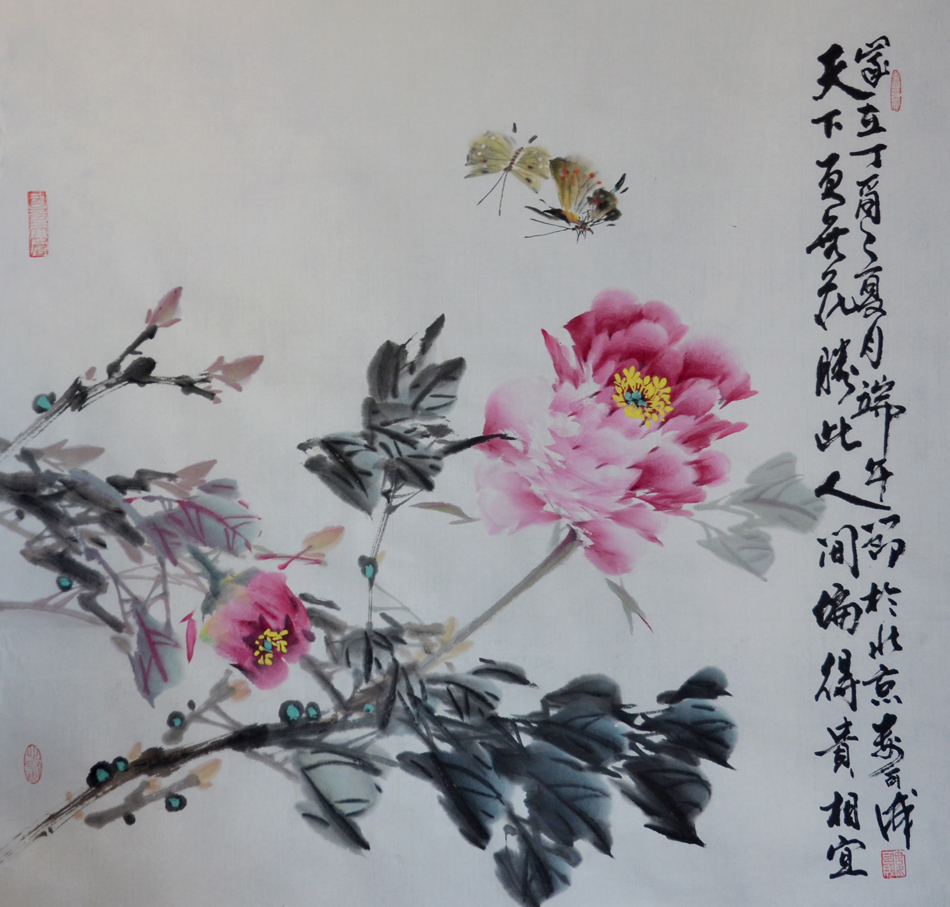 天下更無花勝此人間偏得貴相宜
歲在丁酉之夏月端午節於北京